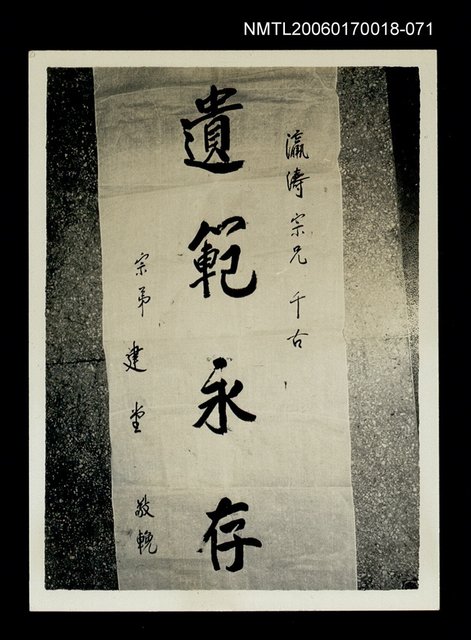 NMTL20060170018-071
瀛濤宗兄 千古
遺範永存
宗弟 建堂 敬輓